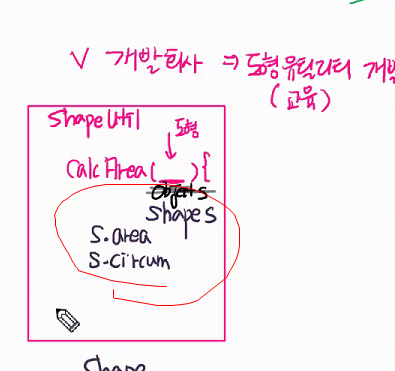 V 개발회사 ⇒ 도형유틸리티 개발
(교육)
ShapeUtil
도형
↓
CalcArea( __ ){
Object s
Shape s
S.area
S.circum
Shape